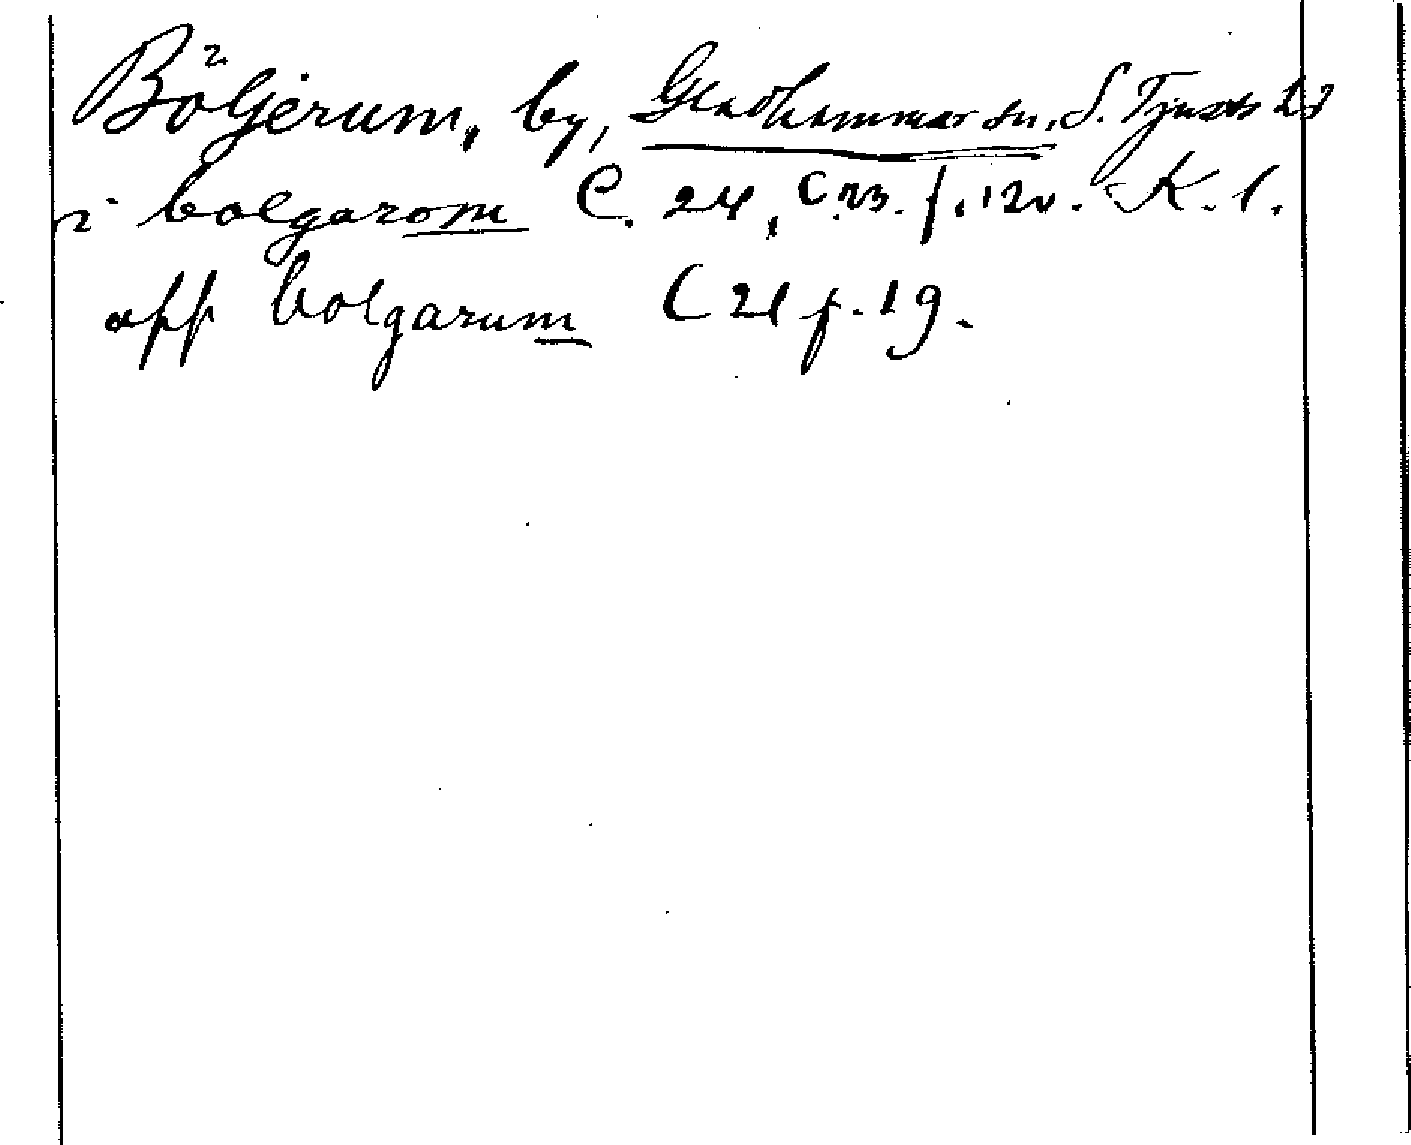 Böljerum, by, Gladhammar sn, S. Tjusts hd
i bolgarom C. 24, C 23. f. 12v. K. l.
aff bolgarum C 21 f. 19.